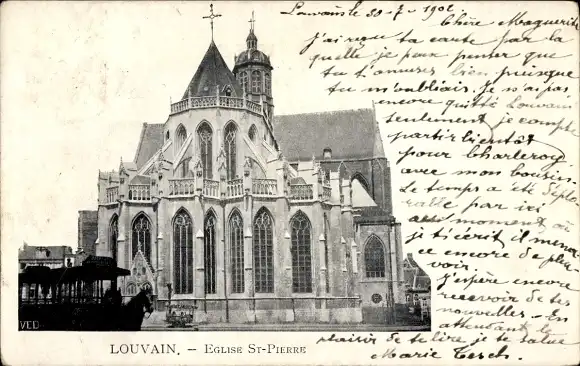 Louvain le 30-7-1902
Chère Maguerite
J'ai reçu ta carte par la
quelle je peux penser que
tu t'amuses bien puisque
tu m'oubliais. Je n'ai pas
encore quitté Louvain
seulement je compte
partir bientôt
pour Charleroy
avec mon cousin.
Le temps a été déplo
rable par ici
au moment où
je t'écrit il mena
ce encore de pleu
voir.
J'espère encore
recevoir de tes
nouvelles. En
attendant le
plaisir de te lire je te salue
Marie
VED
LOUVAIN. - EGLISE ST-PIERRE